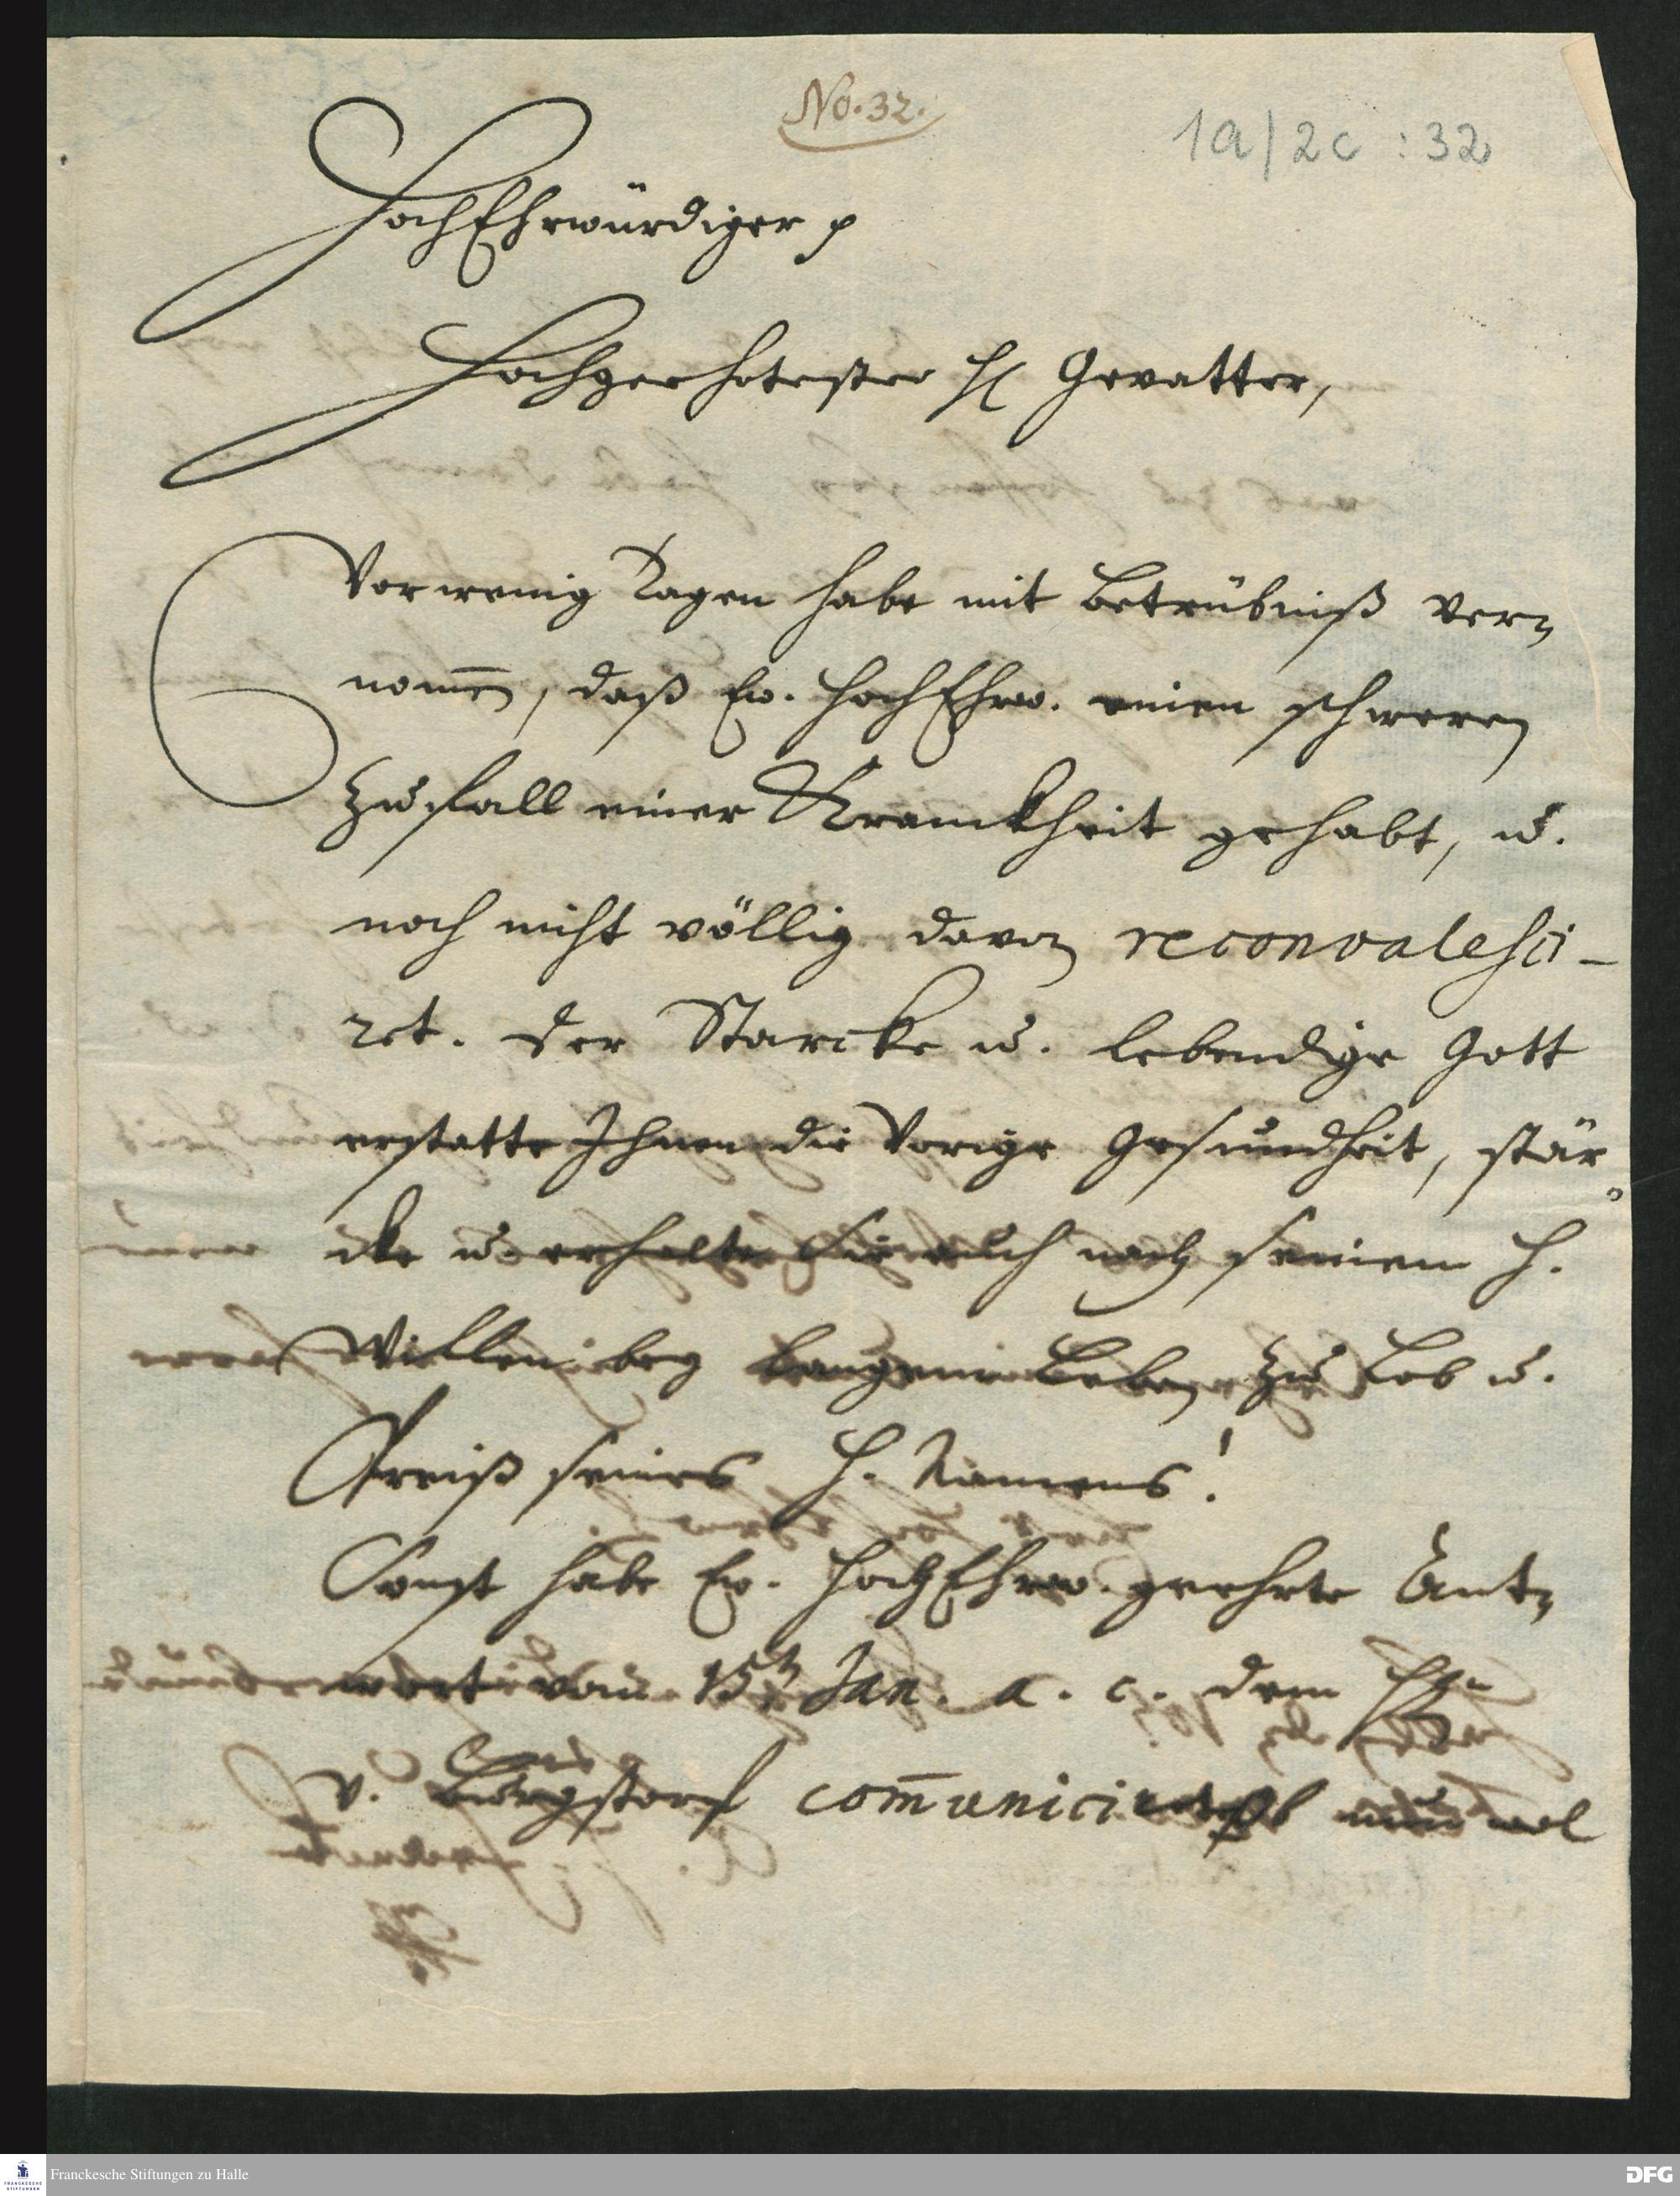 No. 32.
1a/2c : 32
HochEhrwürdiger p
Hochgeehrtester H Gevatter,
Vor wenig Tagen habe mit Betrübniß ver-
nom̄en, daß Ew. HochEhrw. einen schweren
Zufall einer Kranckheit gehabt, u.
noch nicht völlig davon reconvalesci-
ret. Der Starcke u. lebendige Gott
erstatte Ihnen die Vorige Gesundheit, stär-
cke u. erhalte Sie auch nach seinem h.
Willen bey langem Leben zu Lob u.
Preiß seines h. Namens!
Sonst habe Ew. HochEhrw. geehrte Ant-
wort vom 15t Jan. a. c. dem Hn
v. Burgstorf com̄uniciret, nun wol
Franckesche Stiftungen zu Halle
FRANCKESCHE STIFTUNGEN
DFG